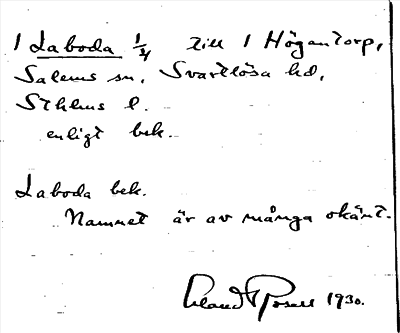 1 Laboda 1/4 till 1 Högantorp,
Salems sn, Svartlösa hd,
Sthlms l.
enligt bek.
Laboda bek.
Namnet är av många okänt.
1930.